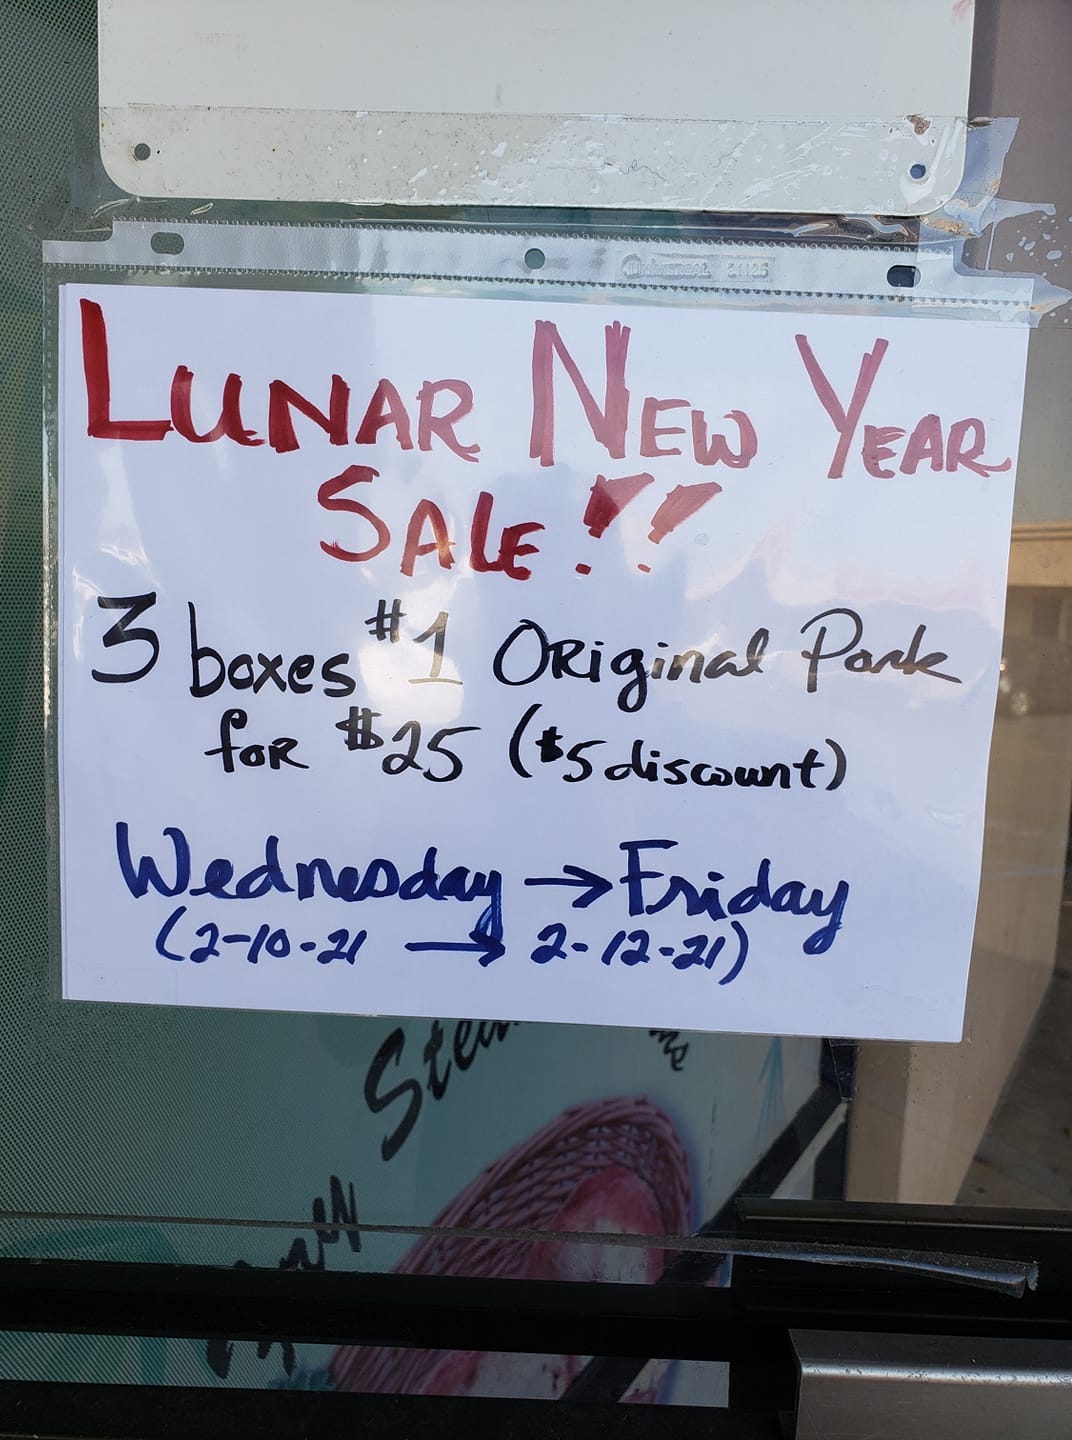 UNIVERSAL 21125
LUNAR NEW YEAR
SALE!!
3 boxes #1 Original Pork
for $25 ($5 discount)
Wednesday → Friday
(2-10-21 → 2-12-21)